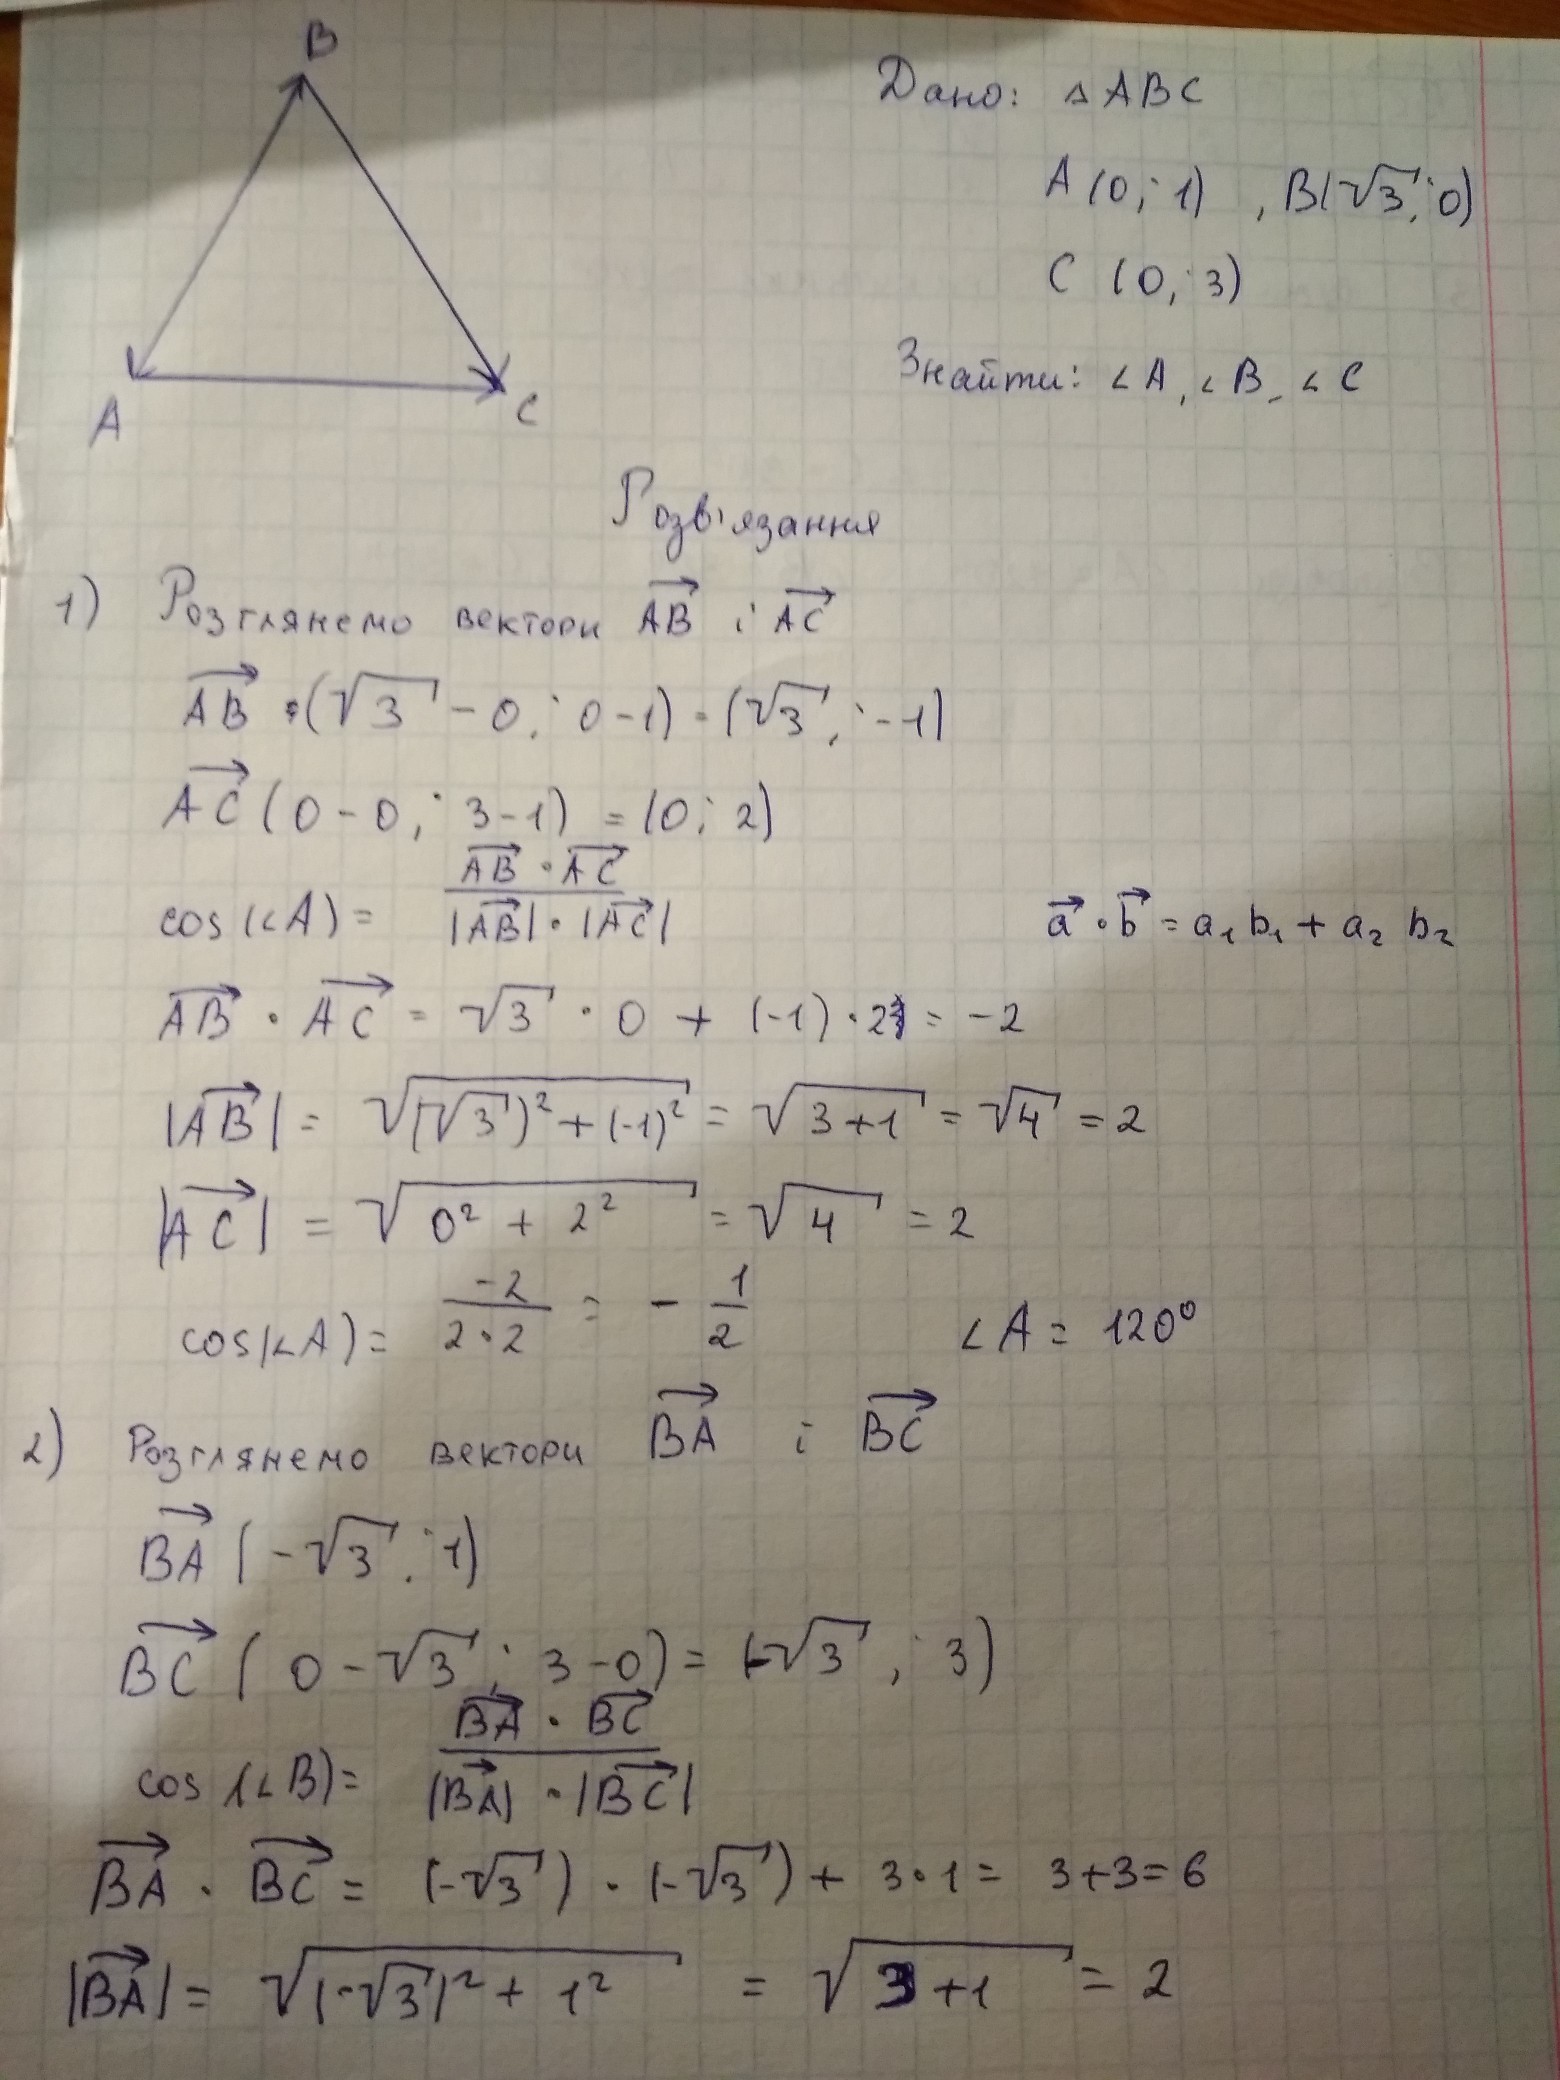 B
A
C
Дано: △ABC
A (0; 1) , B(√3; 0)
C (0; 3)
Знайти: ∠A, ∠B, ∠C
Розв'язання
1) Розглянемо вектори AB→ і AC→
AB→ (√3 - 0; 0-1) = (√3; -1)
AC→ (0-0; 3-1) = (0; 2)
cos(∠A) = (AB→ · AC→) / (|AB→| · |AC→|)
a→ · b→ = a₁ b₁ + a₂ b₂
AB→ · AC→ = √3 · 0 + (-1) · 2 = -2
|AB→| = √((√3)² + (-1)²) = √(3+1) = √4 = 2
|AC→| = √(0² + 2²) = √4 = 2
cos(∠A) = -2 / (2·2) = - 1/2 ∠A = 120°
2) Розглянемо вектори BA→ і BC→
BA→ (-√3; 1)
BC→ (0-√3; 3-0) = (-√3; 3)
cos (∠B) = (BA→ · BC→) / (|BA→| · |BC→|)
BA→ · BC→ = (-√3) · (-√3) + 3·1 = 3+3=6
|BA→| = √((-√3)² + 1²) = √(3+1) = 2